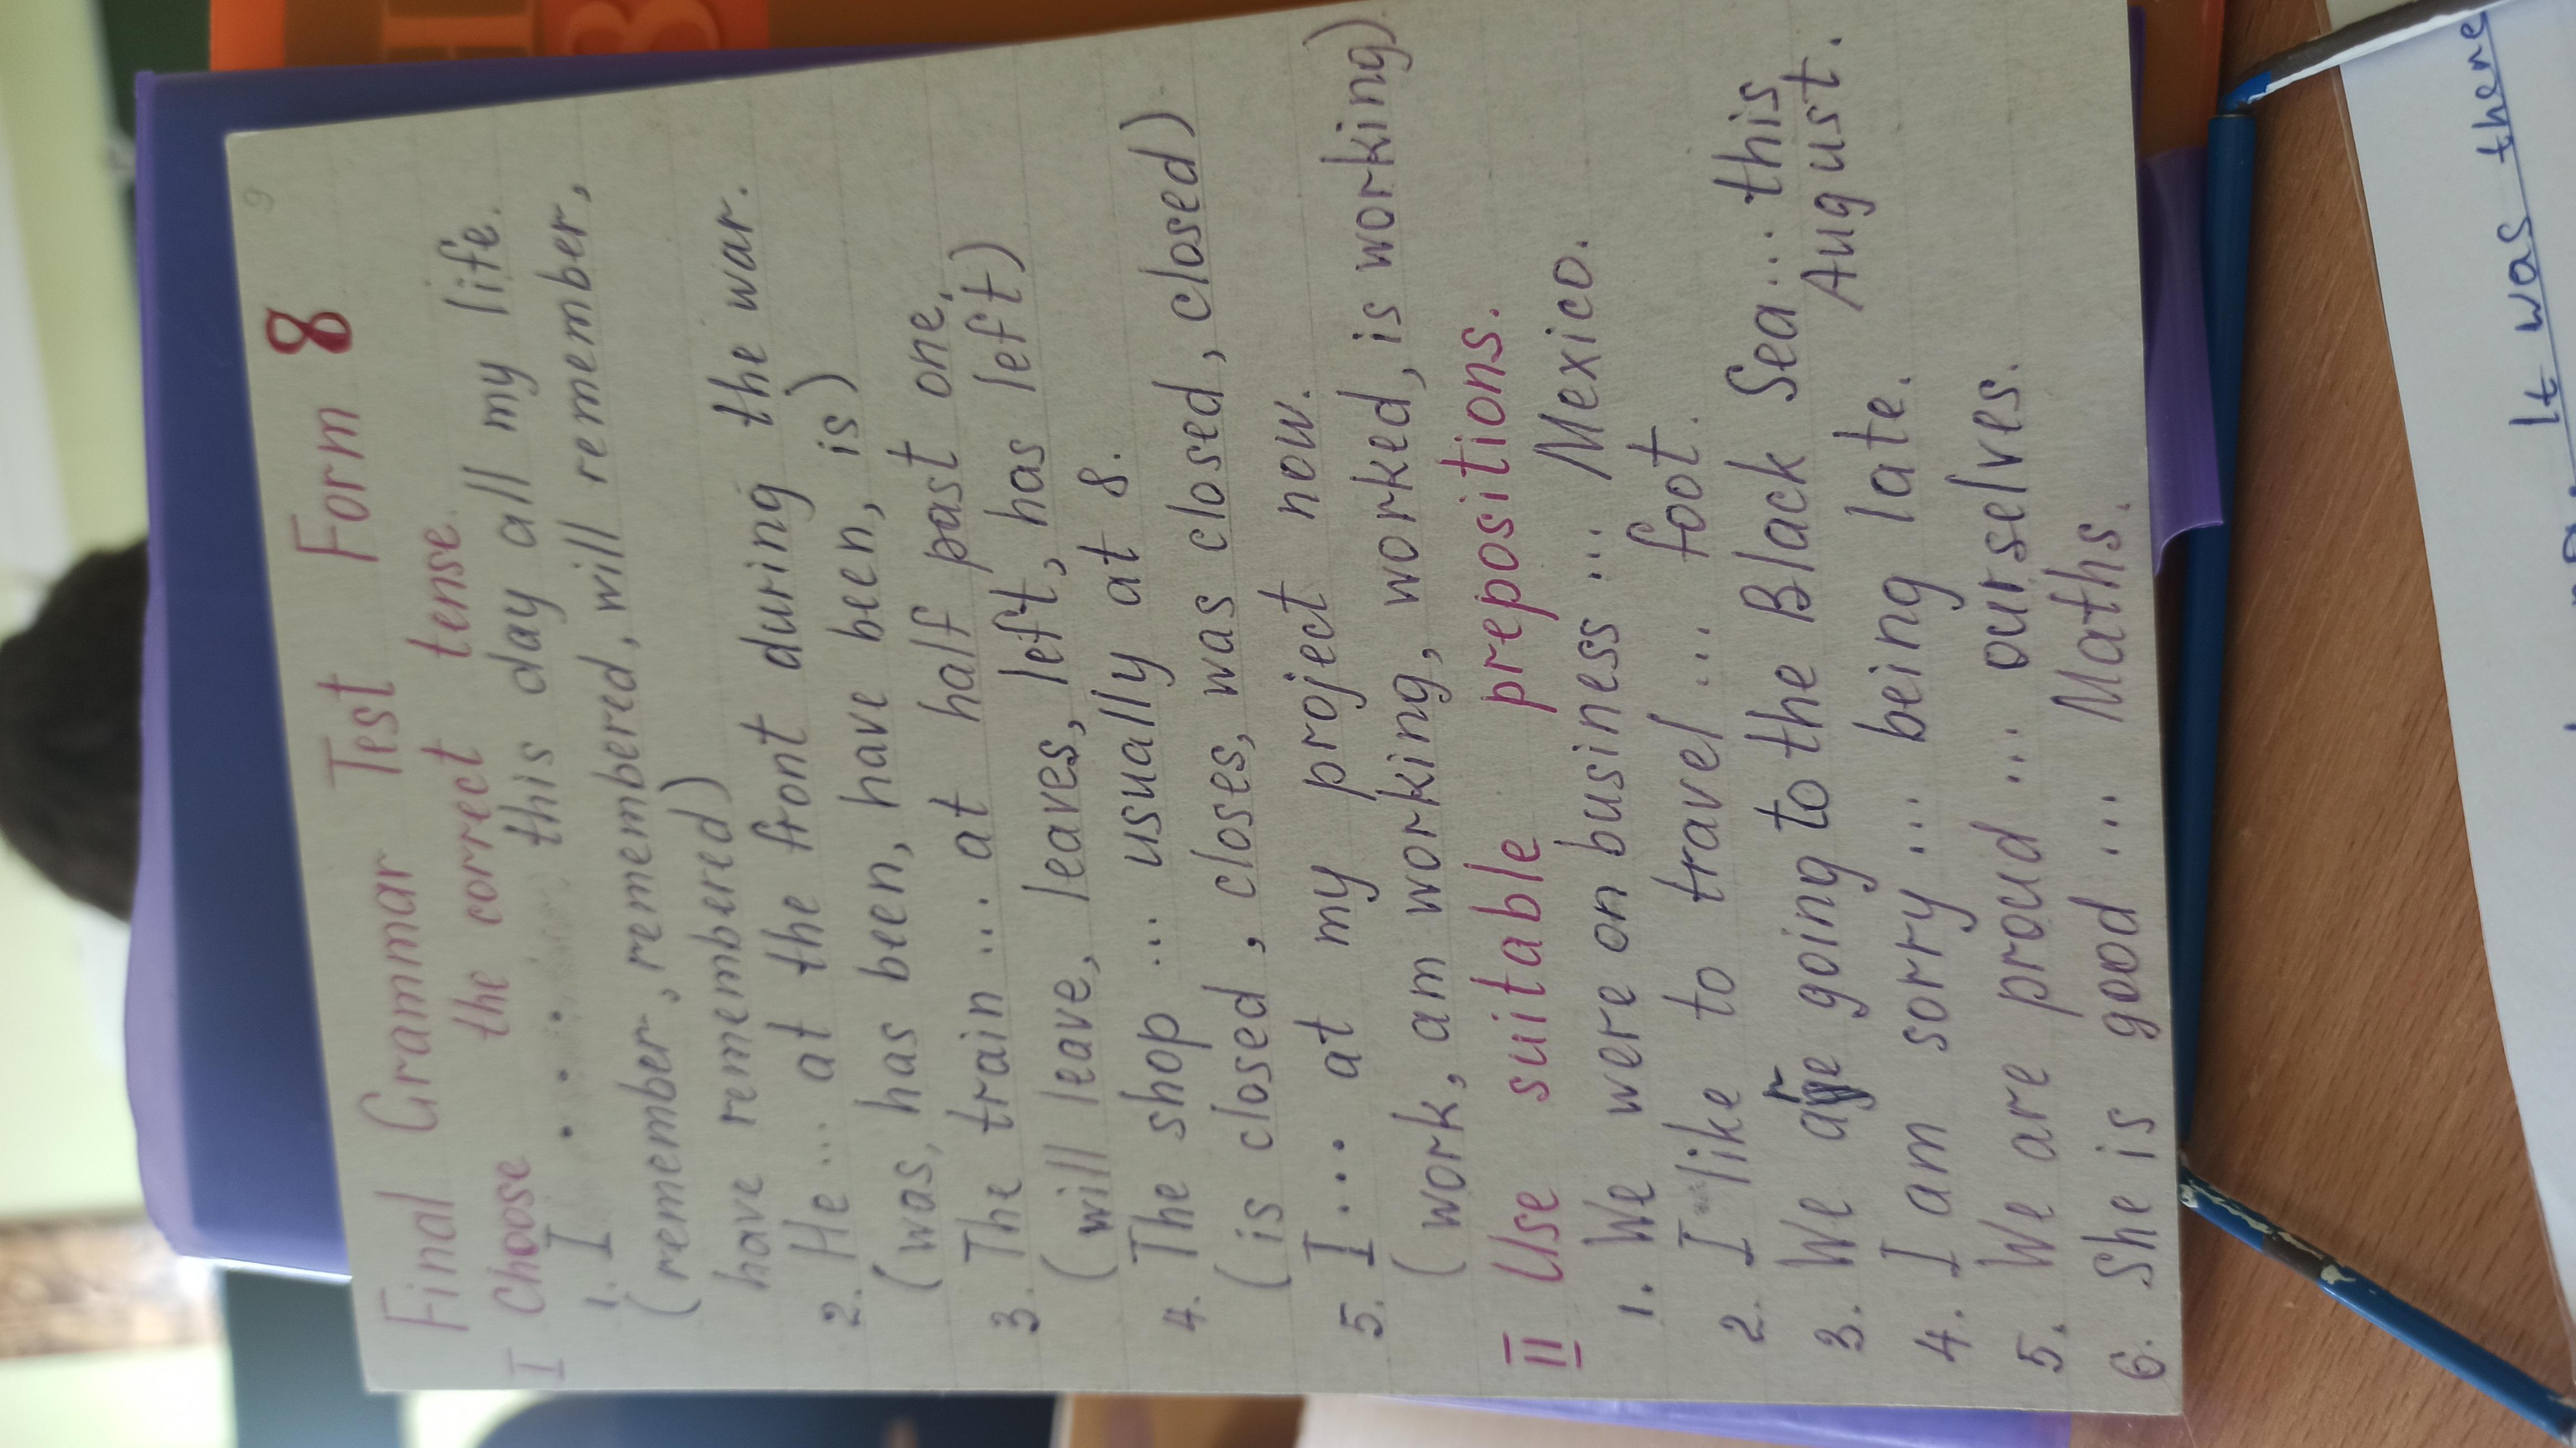 Final Grammar Test Form 8
I Choose the correct tense.
1. I ..... this day all my life.
(remember, remembered, will remember,
have remembered)
2. He ... at the front during the war.
(was, has been, have been, is)
3. The train ... at half past one.
(will leave, leaves, left, has left)
4. The shop ... usually at 8.
(is closed, closes, was closed, closed)
5. I ... at my project now.
(work, am working, worked, is working)
II Use suitable prepositions.
1. We were on business ... Mexico.
2. I like to travel ... foot.
3. We are going to the Black Sea ... this
August.
4. I am sorry ... being late.
5. We are proud ... ourselves.
6. She is good ... Maths.
It was there